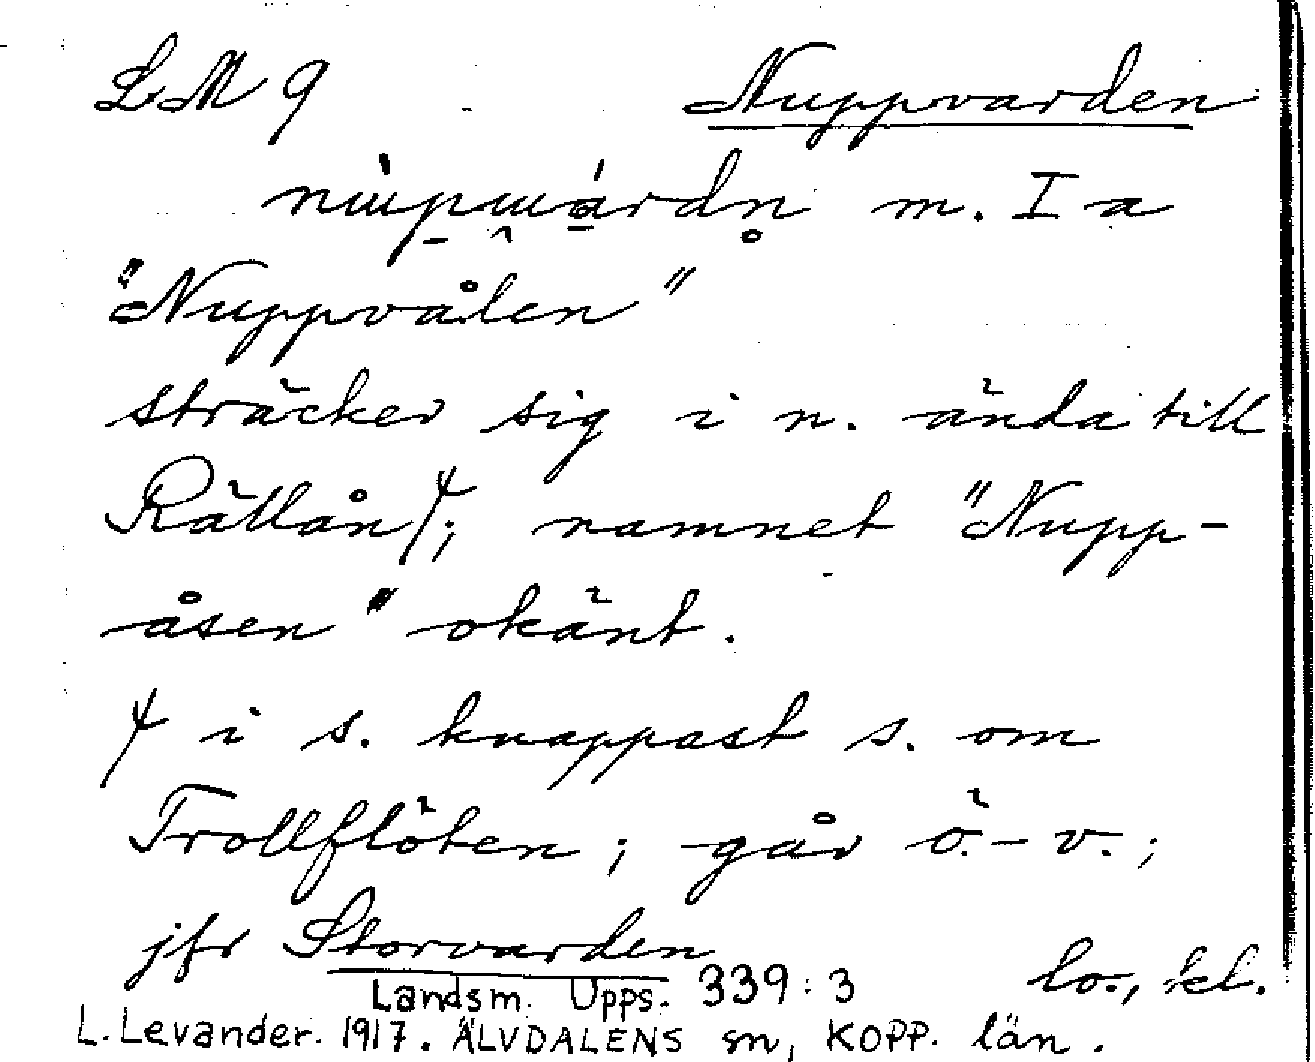 LM 9 Nuppvarden
m. I a
"Nuppvålen"
sträcker sig i n. ända till
Rällån⸸; namnet "Nupp-
åsen" okänt.
⸸ i s. knappast s. om
Trollflöten; går ö.-v.;
jfr Storvarden
lo., kl.
Landsm. Upps. 339:3
L. Levander. 1917. ÄLVDALENS sn, KOPP. län.